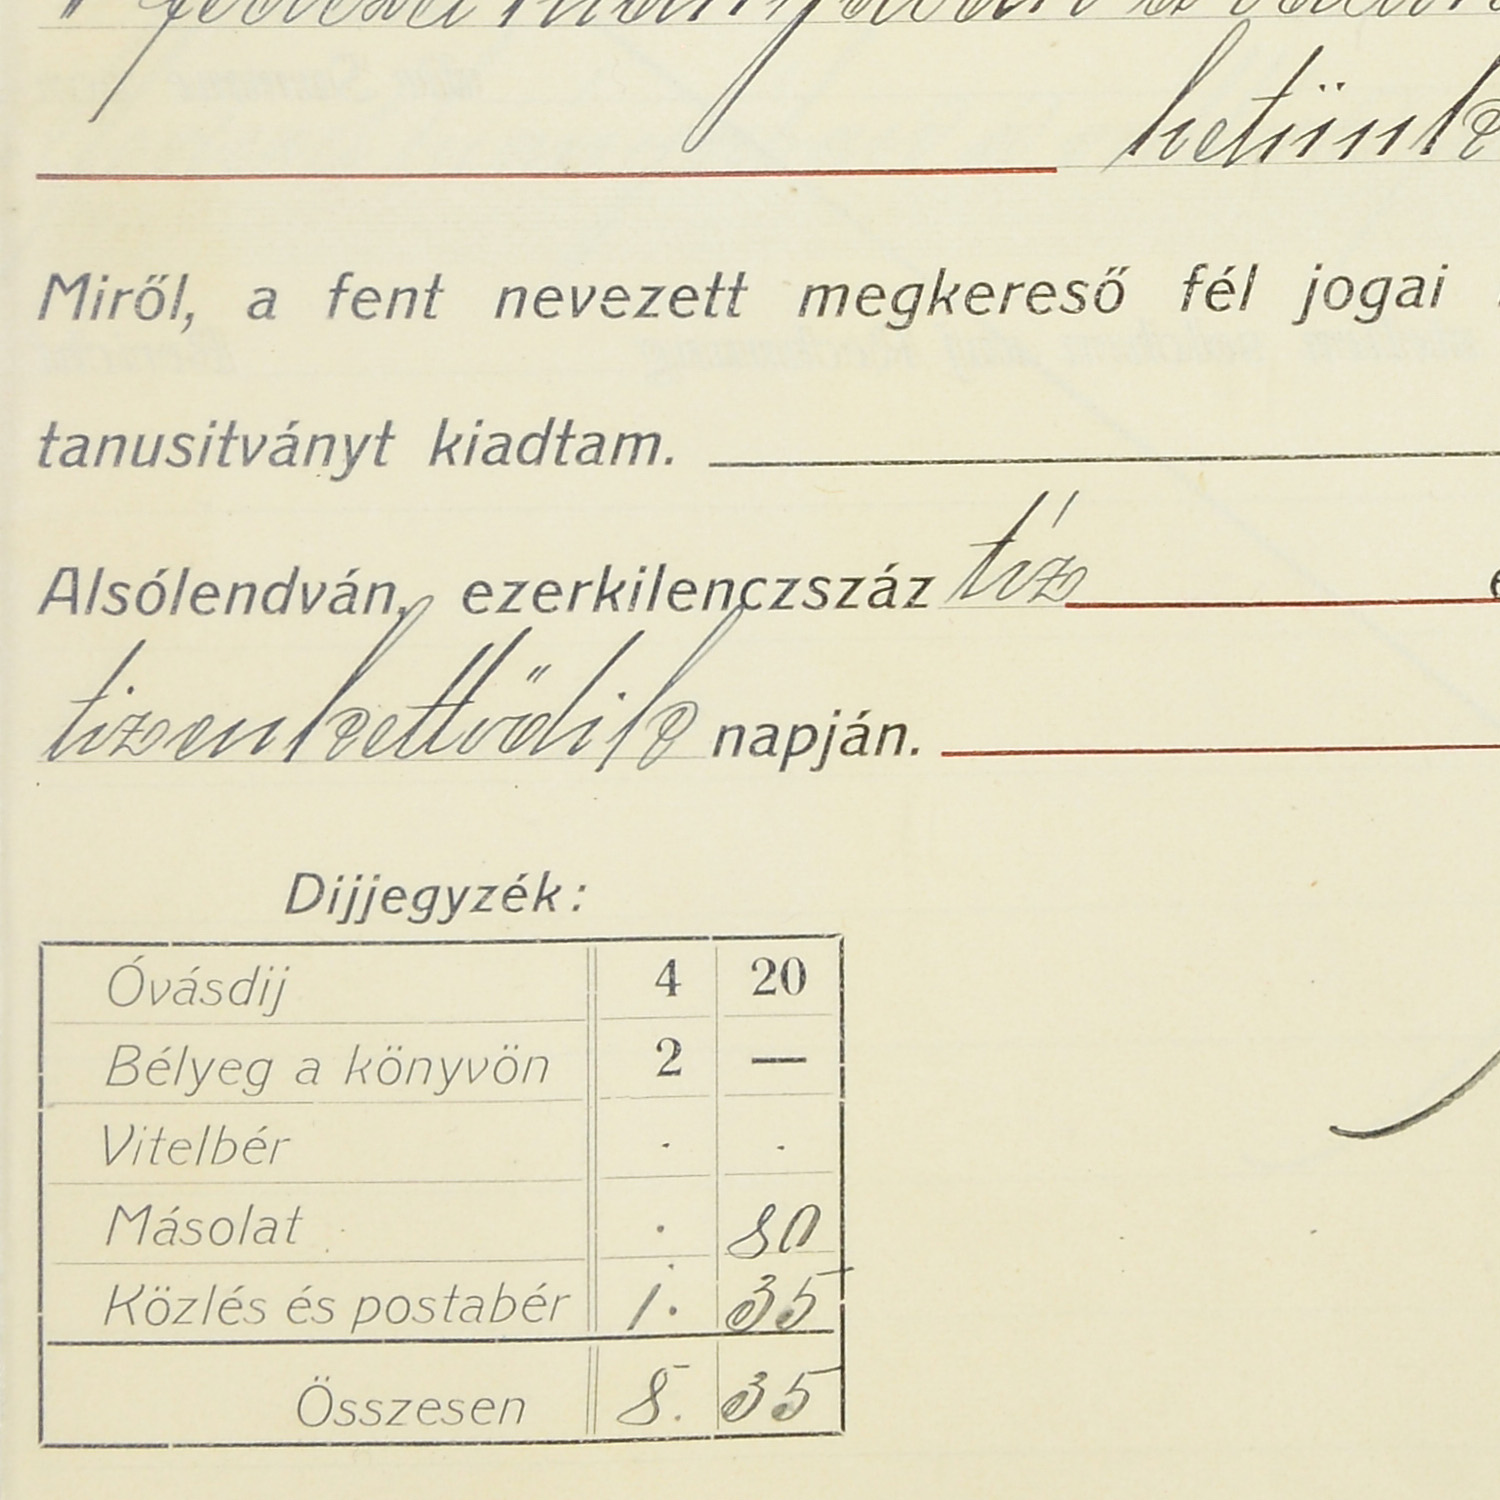 hetünk
Miről, a fent nevezett megkereső fél jogai
tanusitványt kiadtam.
Alsólendván, ezerkilenczszáz tíz
tizenkettődik napján.
Dijjegyzék:
Óvásdij 4 20
Bélyeg a könyvön 2 —
Vitelbér . .
Másolat . 80
Közlés és postabér 1. 35
Összesen 8. 35